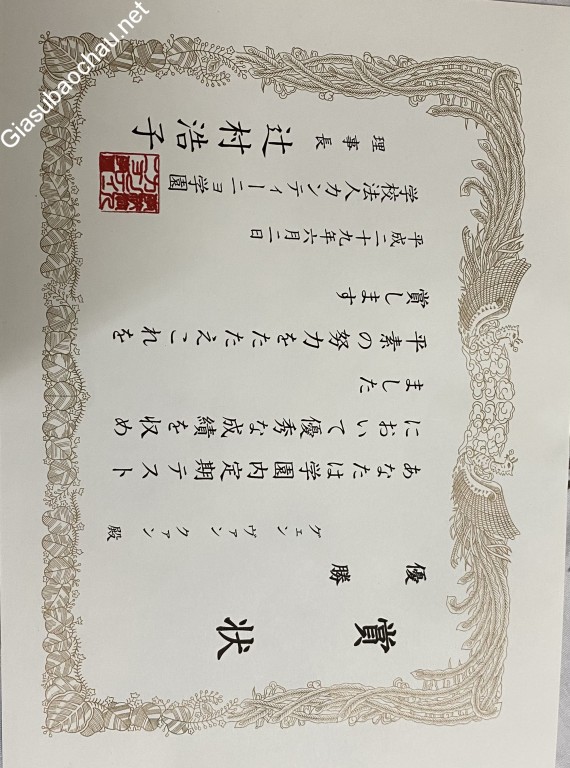 賞状
優勝
グェン ヴァン クァン 殿
あなたは学園内定期テスト
において優秀な成績を収め
ました
平素の努力をたたえこれを
賞します
平成二十九年六月二日
学校法人カンティーニョ学園
理事長 辻村浩子
Giasubaochau.net